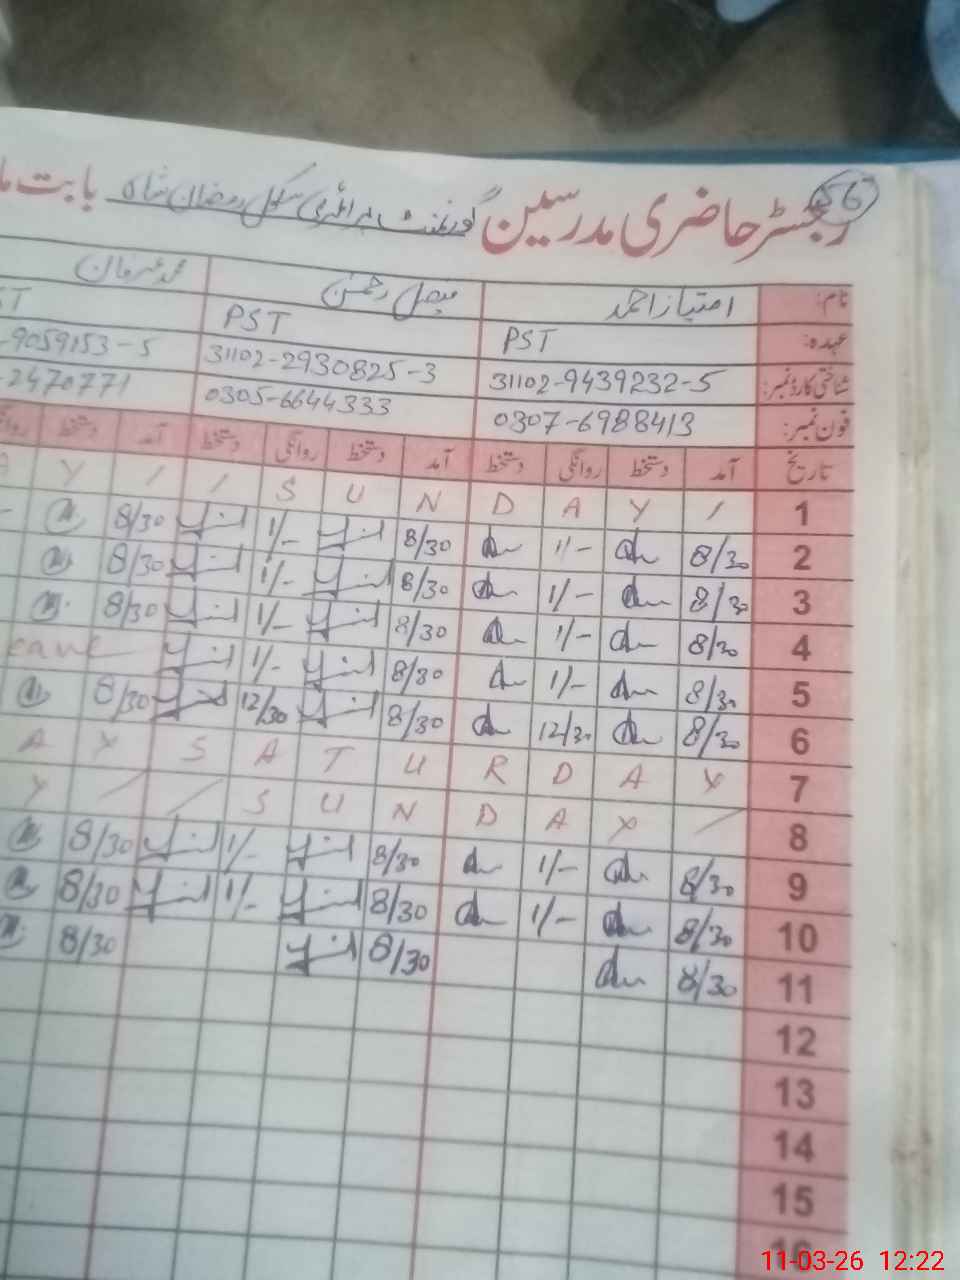 56
رجسٹر حاضری مدرسین گورنمنٹ پرائمری سکول رمضان شاہ بابت ما
نام: امتیاز احمد فیصل رحمٰن محمد عرفان
عہدہ: PST PST ST
شناختی کارڈ نمبر: 31102-9439232-5 31102-2930825-3 -9059153-5
فون نمبر: 0307-6988413 0305-6644333 -2470771
تاریخ آمد دستخط روانگی دستخط آمد دستخط روانگی دستخط آمد دستخط
1 / Y A D N U S / / Y A
2 8/30 1/- 8/30 1/- 8/30
3 8/30 1/- 8/30 1/- 8/30
4 8/30 1/- 8/30 1/- 8/30
5 8/30 1/- 8/30 1/- eave
6 8/30 12/30 8/30 12/30 8/30
7 Y A D R U T A S Y A
8 / Y A D N U S / / Y
9 8/30 1/- 8/30 1/- 8/30
10 8/30 1/- 8/30 1/- 8/30
11 8/30 8/30 8/30
12
13
14
15
16
11-03-26 12:22